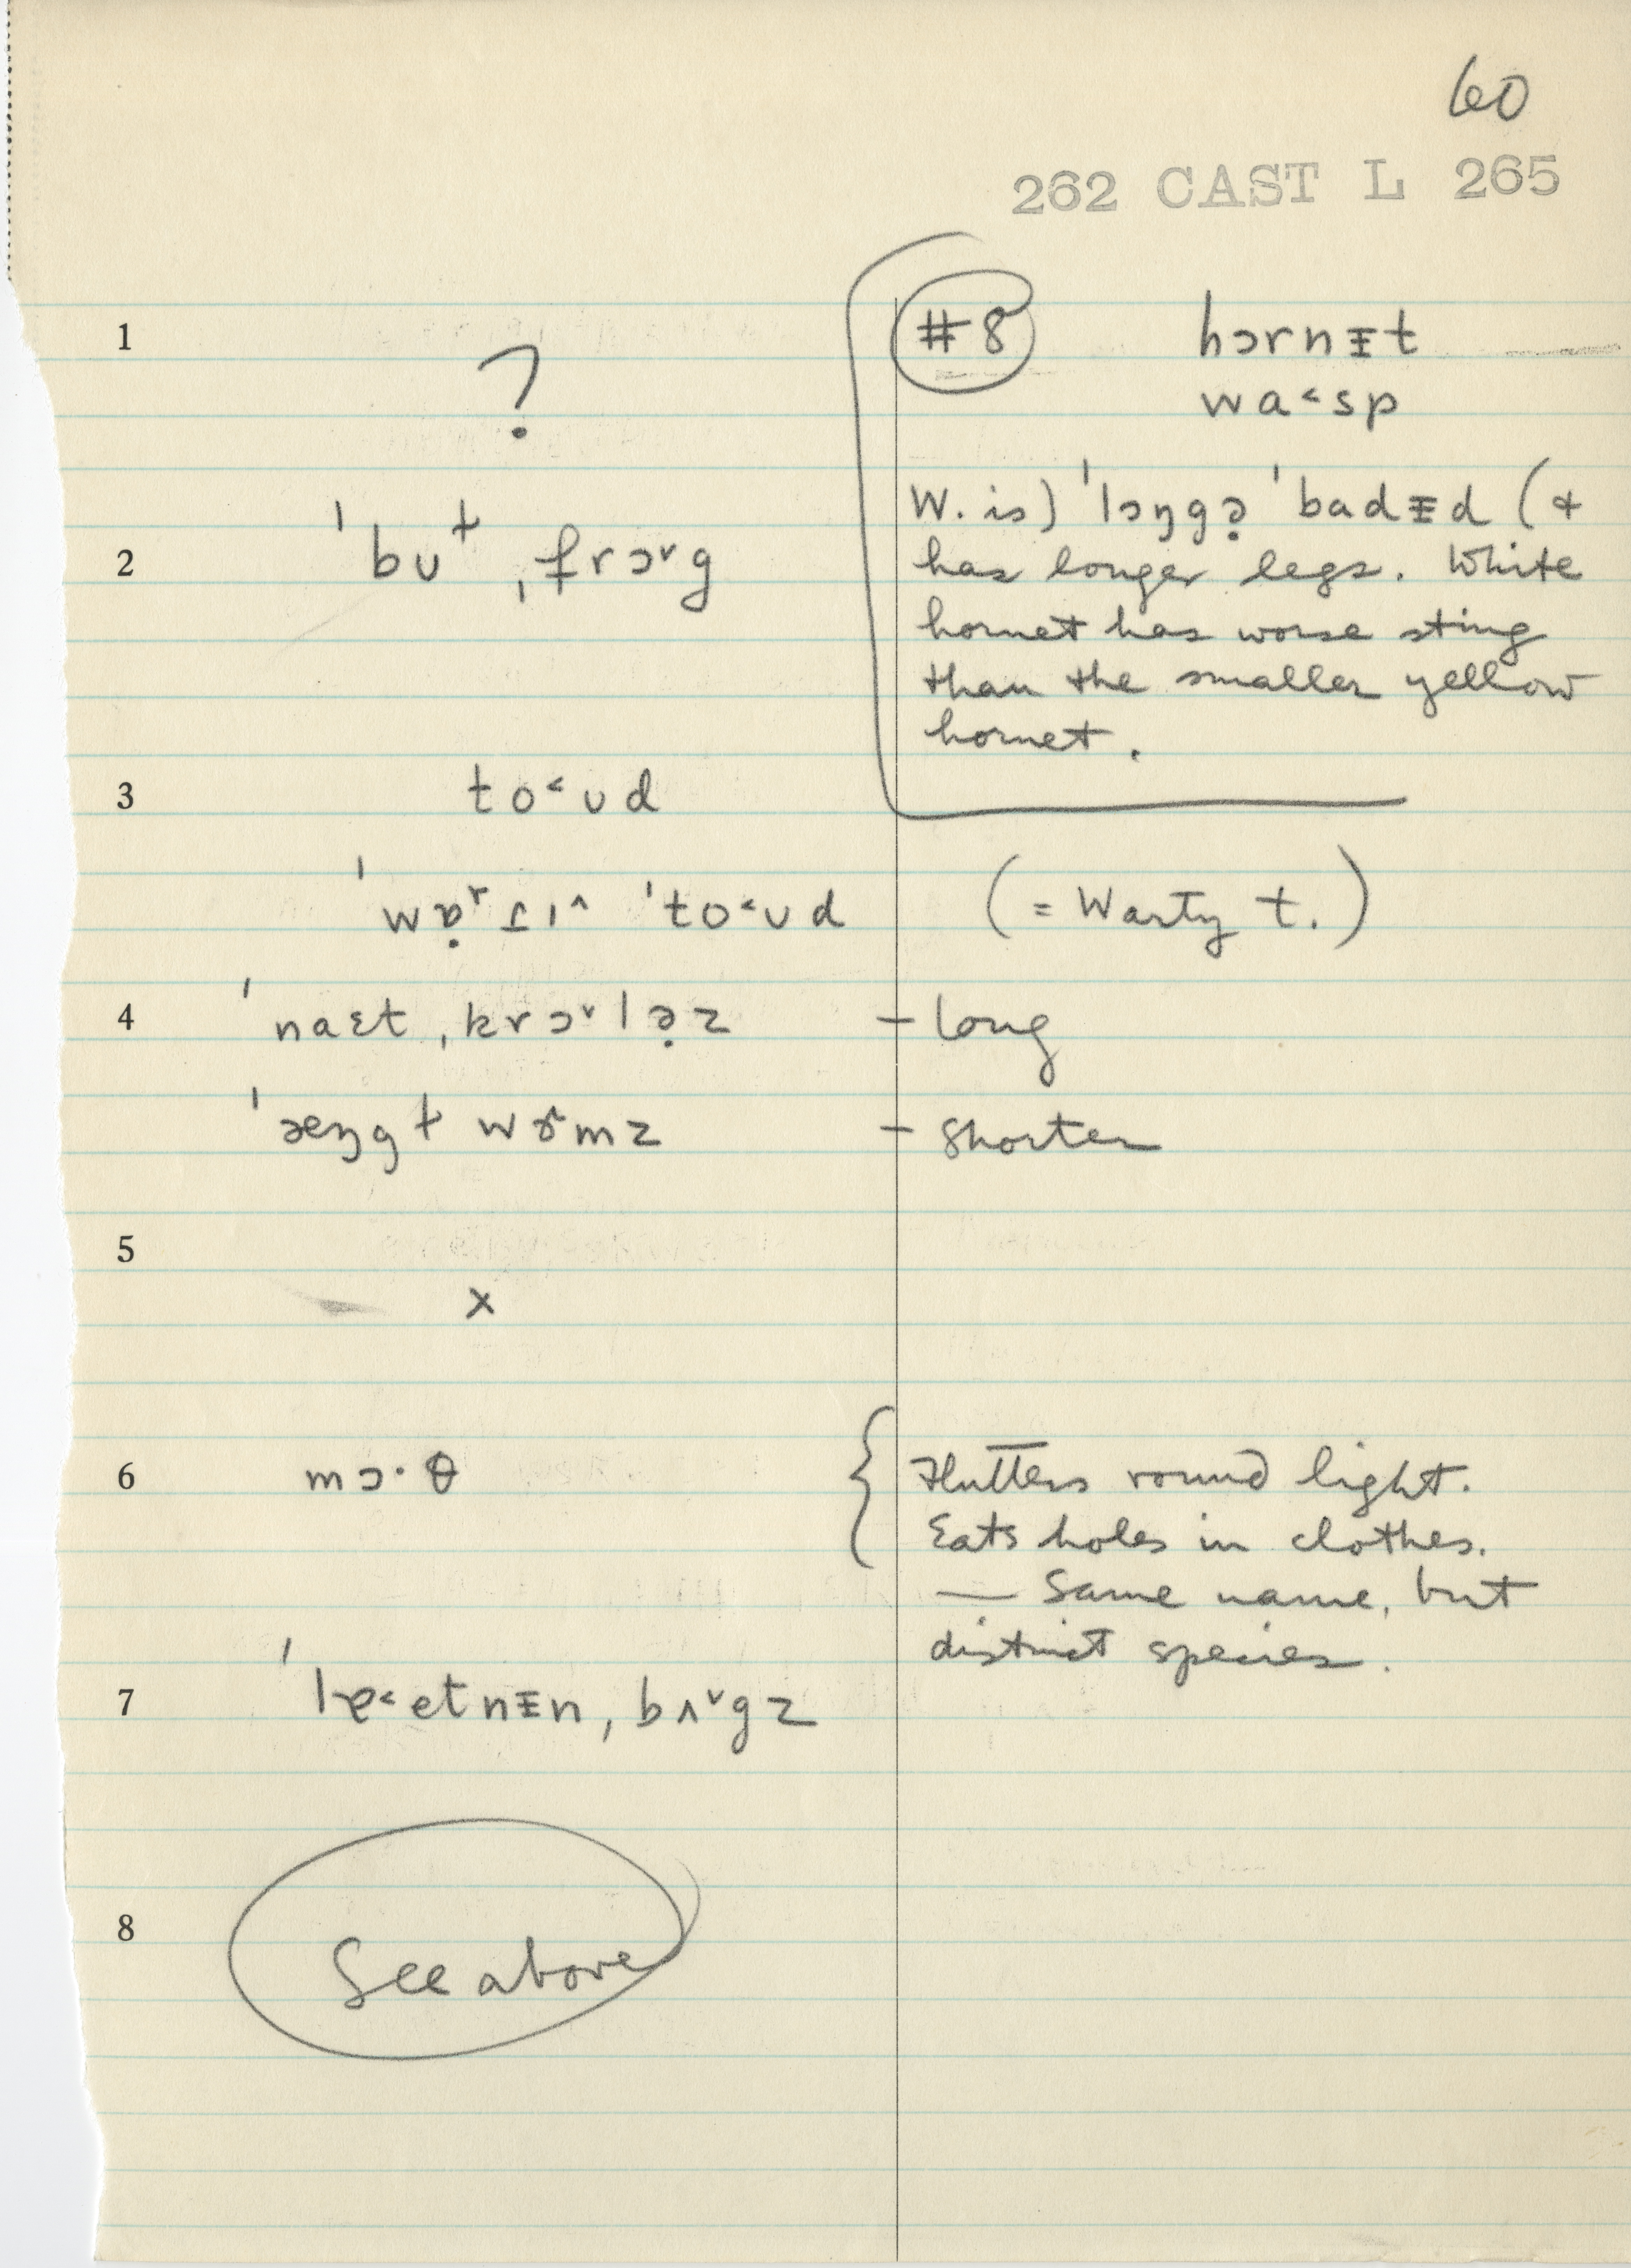 60
262 CAST L 265
1
?
#8 hɔrnɪ̵t
wa˂sp
W. is) ˈlɔŋgə̣ ˈbadɪ̵d (&
has longer legs. White
hornet has worse sting
than the smaller yellow
hornet.
2 ˈbʊ ˌfrɔ˅g
3 to˂ʊd
ˈwɒ̣ʳɾɪ^ ˈto˂ʊd (= Warty t.)
4 ˈnaɛt ˌkrɔ˅lə̣z – long
ˈæŋgɫ wɚmz – Shorter
5
x
6 mɔ·θ { Flutters round light.
Eats holes in clothes.
— Same name, but
distinct species.
7 ˈlɐ˂etnɪ̵n ˌbʌ˅gz
8
See above